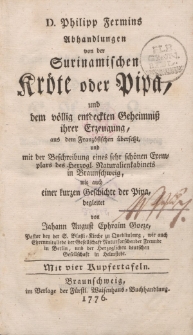 D. Philipp Fermins
Abhandlungen
von der
Surinamischen
Kröte oder Pipa,
und
dem völlig entdeckten Geheimniß
ihrer Erzeugung,
aus dem Französischen übersetzt,
und
mit der Beschreibung eines sehr schönen Exem-
plars des Herzogl. Naturalienkabinets
in Braunschweig,
wie auch
einer kurzen Geschichte der Pipa,
begleitet
von
Johann August Ephraim Goeze,
Pastor bey der S. Blasii-Kirche zu Quedlinburg, wie auch
Ehrenmitgliede der Gesellschaft Naturforschender Freunde
in Berlin, und der Herzoglichen deutschen
Gesellschaft in Helmstedt.
Mit vier Kupfertafeln.
Braunschweig,
im Verlage der Fürstl. Waisenhaus-Buchhandlung.
1776.